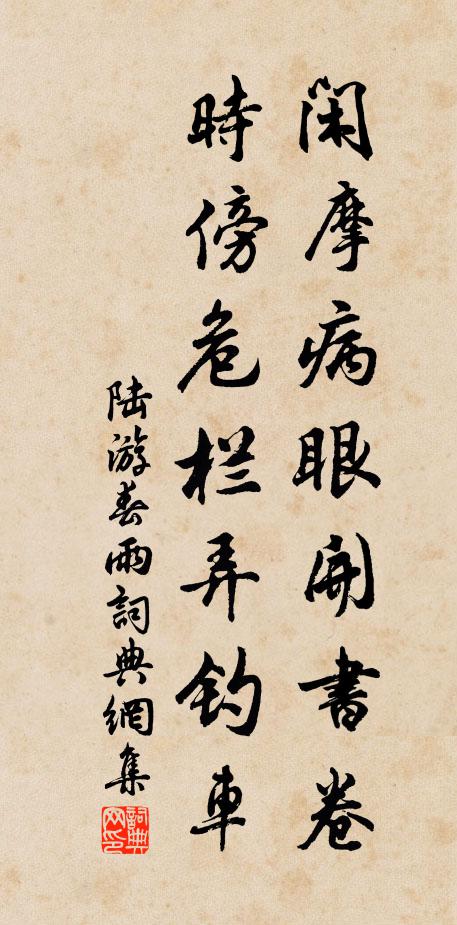 閑摩病眼開書卷
時傍危栏弄钓車
陸游春雨詞典網集
詞典网印